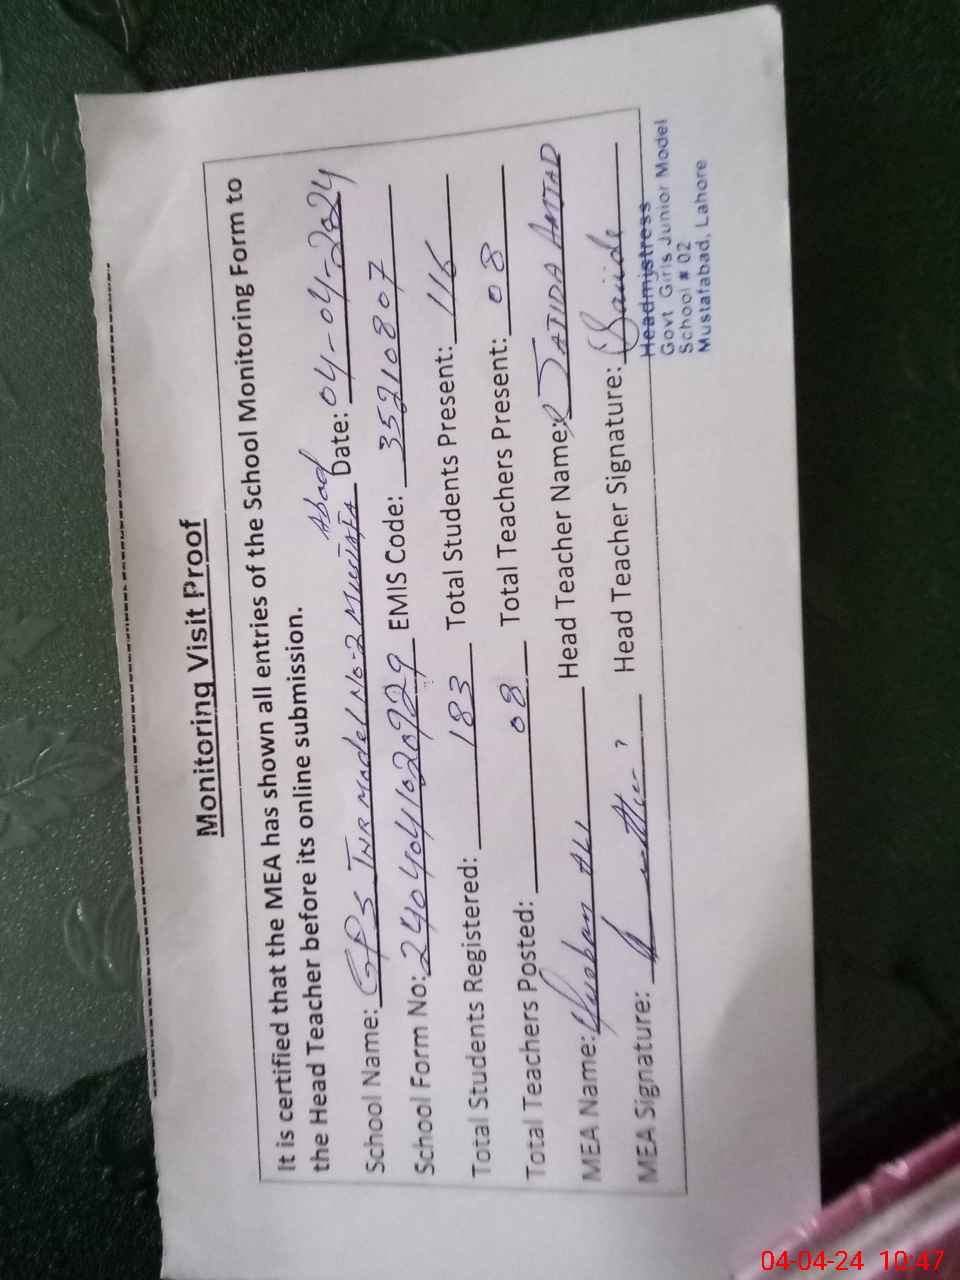 Monitoring Visit Proof
It is certified that the MEA has shown all entries of the School Monitoring Form to
the Head Teacher before its online submission.
School Name: GPS JNR Model No-2 Mustafa Abad Date: 04-04-2024
School Form No: EMIS Code: 35210807
Total Students Registered: 183 Total Students Present: 116
Total Teachers Posted: 08 Total Teachers Present: 08
MEA Name: Head Teacher Name:
MEA Signature: Head Teacher Signature:
Headmistress
Govt Girls Junior Model
School # 02
Mustafabad, Lahore
04-04-24 10:47